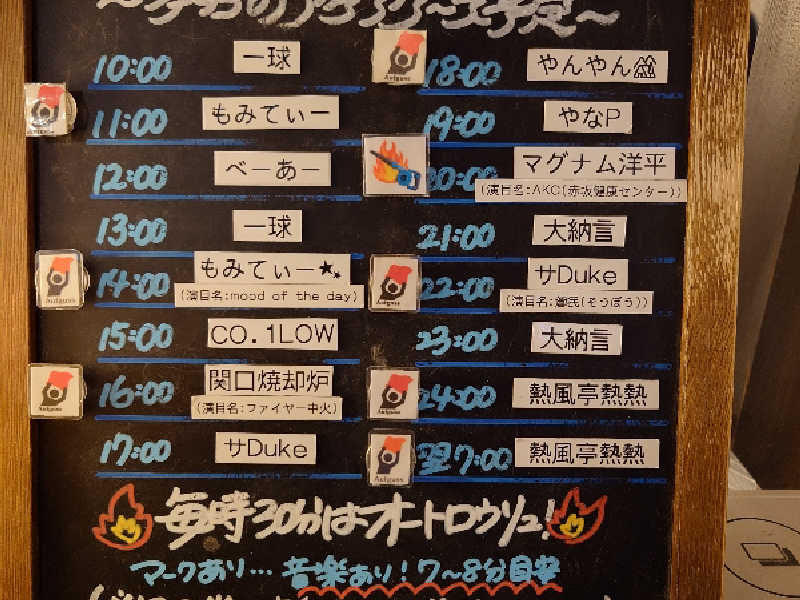 10:00 一球
11:00 もみてぃー
12:00 べーあー
13:00 一球
14:00 もみてぃー
(演目名:mood of the day)
15:00 CO.1LOW
16:00 関口焼却炉
(演目名:ファイヤー中火)
17:00 サDuke
18:00 やんやん
19:00 やなP
20:00 マグナム洋平
(演目名:AKC(赤坂健康センター))
21:00 大納言
22:00 サDuke
(演目名:(そうぼう))
23:00 大納言
24:00 熱風亭熱熱
翌7:00 熱風亭熱熱
毎時30分はオートロウリュ!
マークあり…音楽あり!7~8分目安
Aufguss